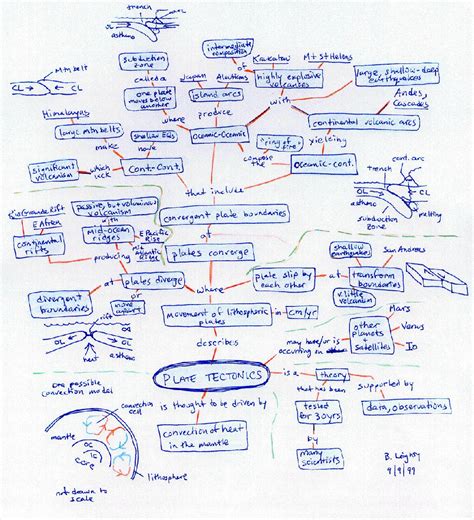 trench
CL
OL
astheno
Mtn belt
CL
CL
subduction
zone
called a
one plate
moves below
another
where
Japan
Aleutians
island arcs
produce
intermediate
composition
of
Krakatau
Mt St Helens
highly explosive
volcanoes
with
large, shallow-deep
earthquakes
Andes,
Cascades
continental volcanic arcs
yielding
Himalayas
large mtn belts
make
shallow EQs
have
Oceanic-Oceanic
"ring of
fire"
compose
the
oceanic-cont.
significant
volcanism
which
lack
Cont-Cont.
that include
convergent plate boundaries
at
plates converge
trench
cont. arc
OL
CL
astheno
melting
subduction
zone
Rio Grande Rift
E Africa
continental
rifts
passive, but voluminous
volcanism
with
Mid-ocean
ridges
E Pacific
Rise
Mid
Atlantic
Ridge
producing
at
plates diverge
where
plate slip by
each other
at
shallow
earthquakes
San Andreas
transform
boundaries
v. little
volcanism
divergent
boundaries
rift
or
OL
heat
astheno
movement of lithospheric
plates
in
cm/yr
describes
PLATE TECTONICS
may have/is or is
occurring on
other
planets +
satellites
Mars
Venus
Io
is a
theory
that has been
tested
for 30yrs
by
many
scientists
supported by
data, observations
is thought to be driven by
convection of heat
in the mantle
one possible
convection model
convection
cell
mantle
OC
IC
core
lithosphere
not drawn to
scale
9/9/99